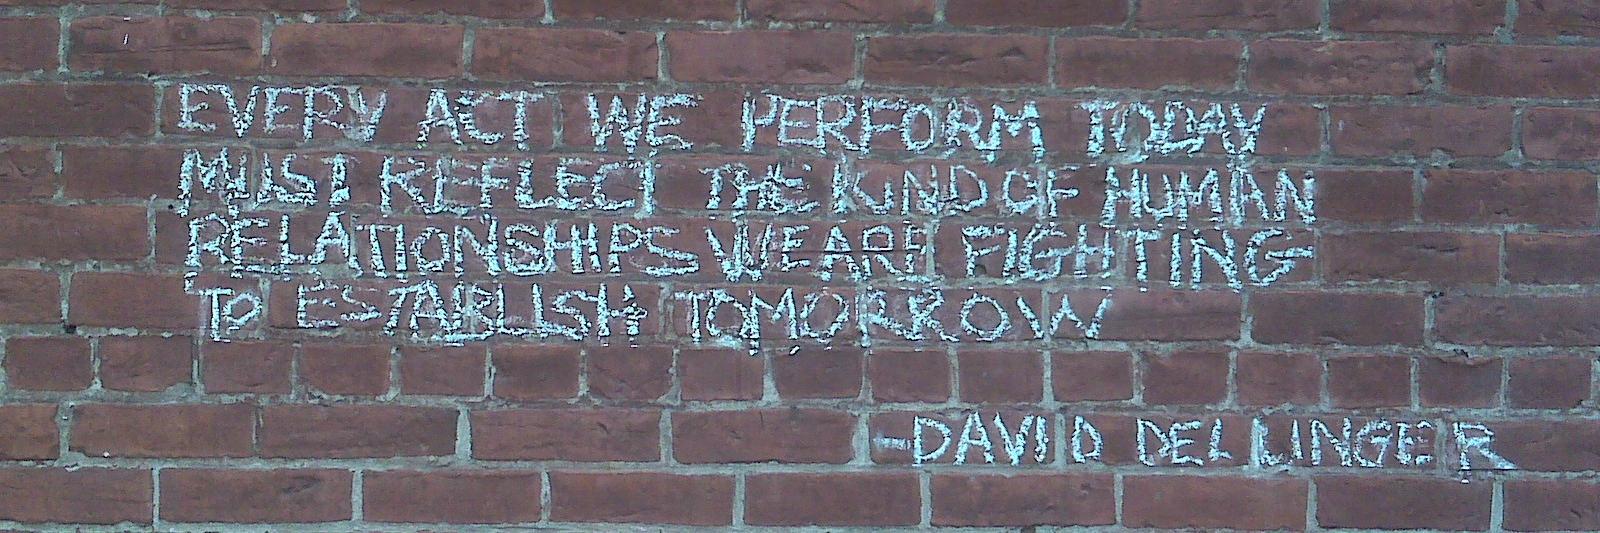 EVERY ACT WE PERFORM TODAY
MUST REFLECT THE KIND OF HUMAN
RELATIONSHIPS WE ARE FIGHTING
TO ESTABLISH TOMORROW
-DAVID DELLINGER